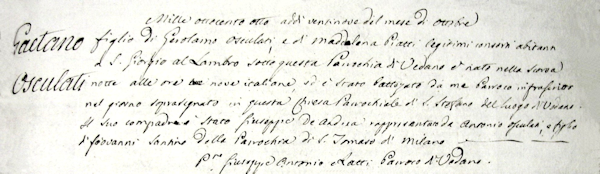 Mille ottocento otto addì ventinove del mese di ottobre
Gaetano figlio di Gerolamo Osculati, e di Maddalena Piatti legitimi consorti abitanti
a S. Giorgio al Lambro sotto questa Parochia di Vedano è nato nella scorsa
Osculati notte alle ore nove italiane, ed è stato battezzato da me Parroco infrascritto
nel giorno soprasegnato in questa Chiesa Parrochiale di S. Stefano del luogo di Vedano.
Il suo compadre è stato Giuseppe De Andrea rappresentato da Antonio Osculati, e figlio
di Giovanni Santino della Parrochia di S. Tomaso di Milano
P. Giuseppe Antonio Parroco di Vedano.